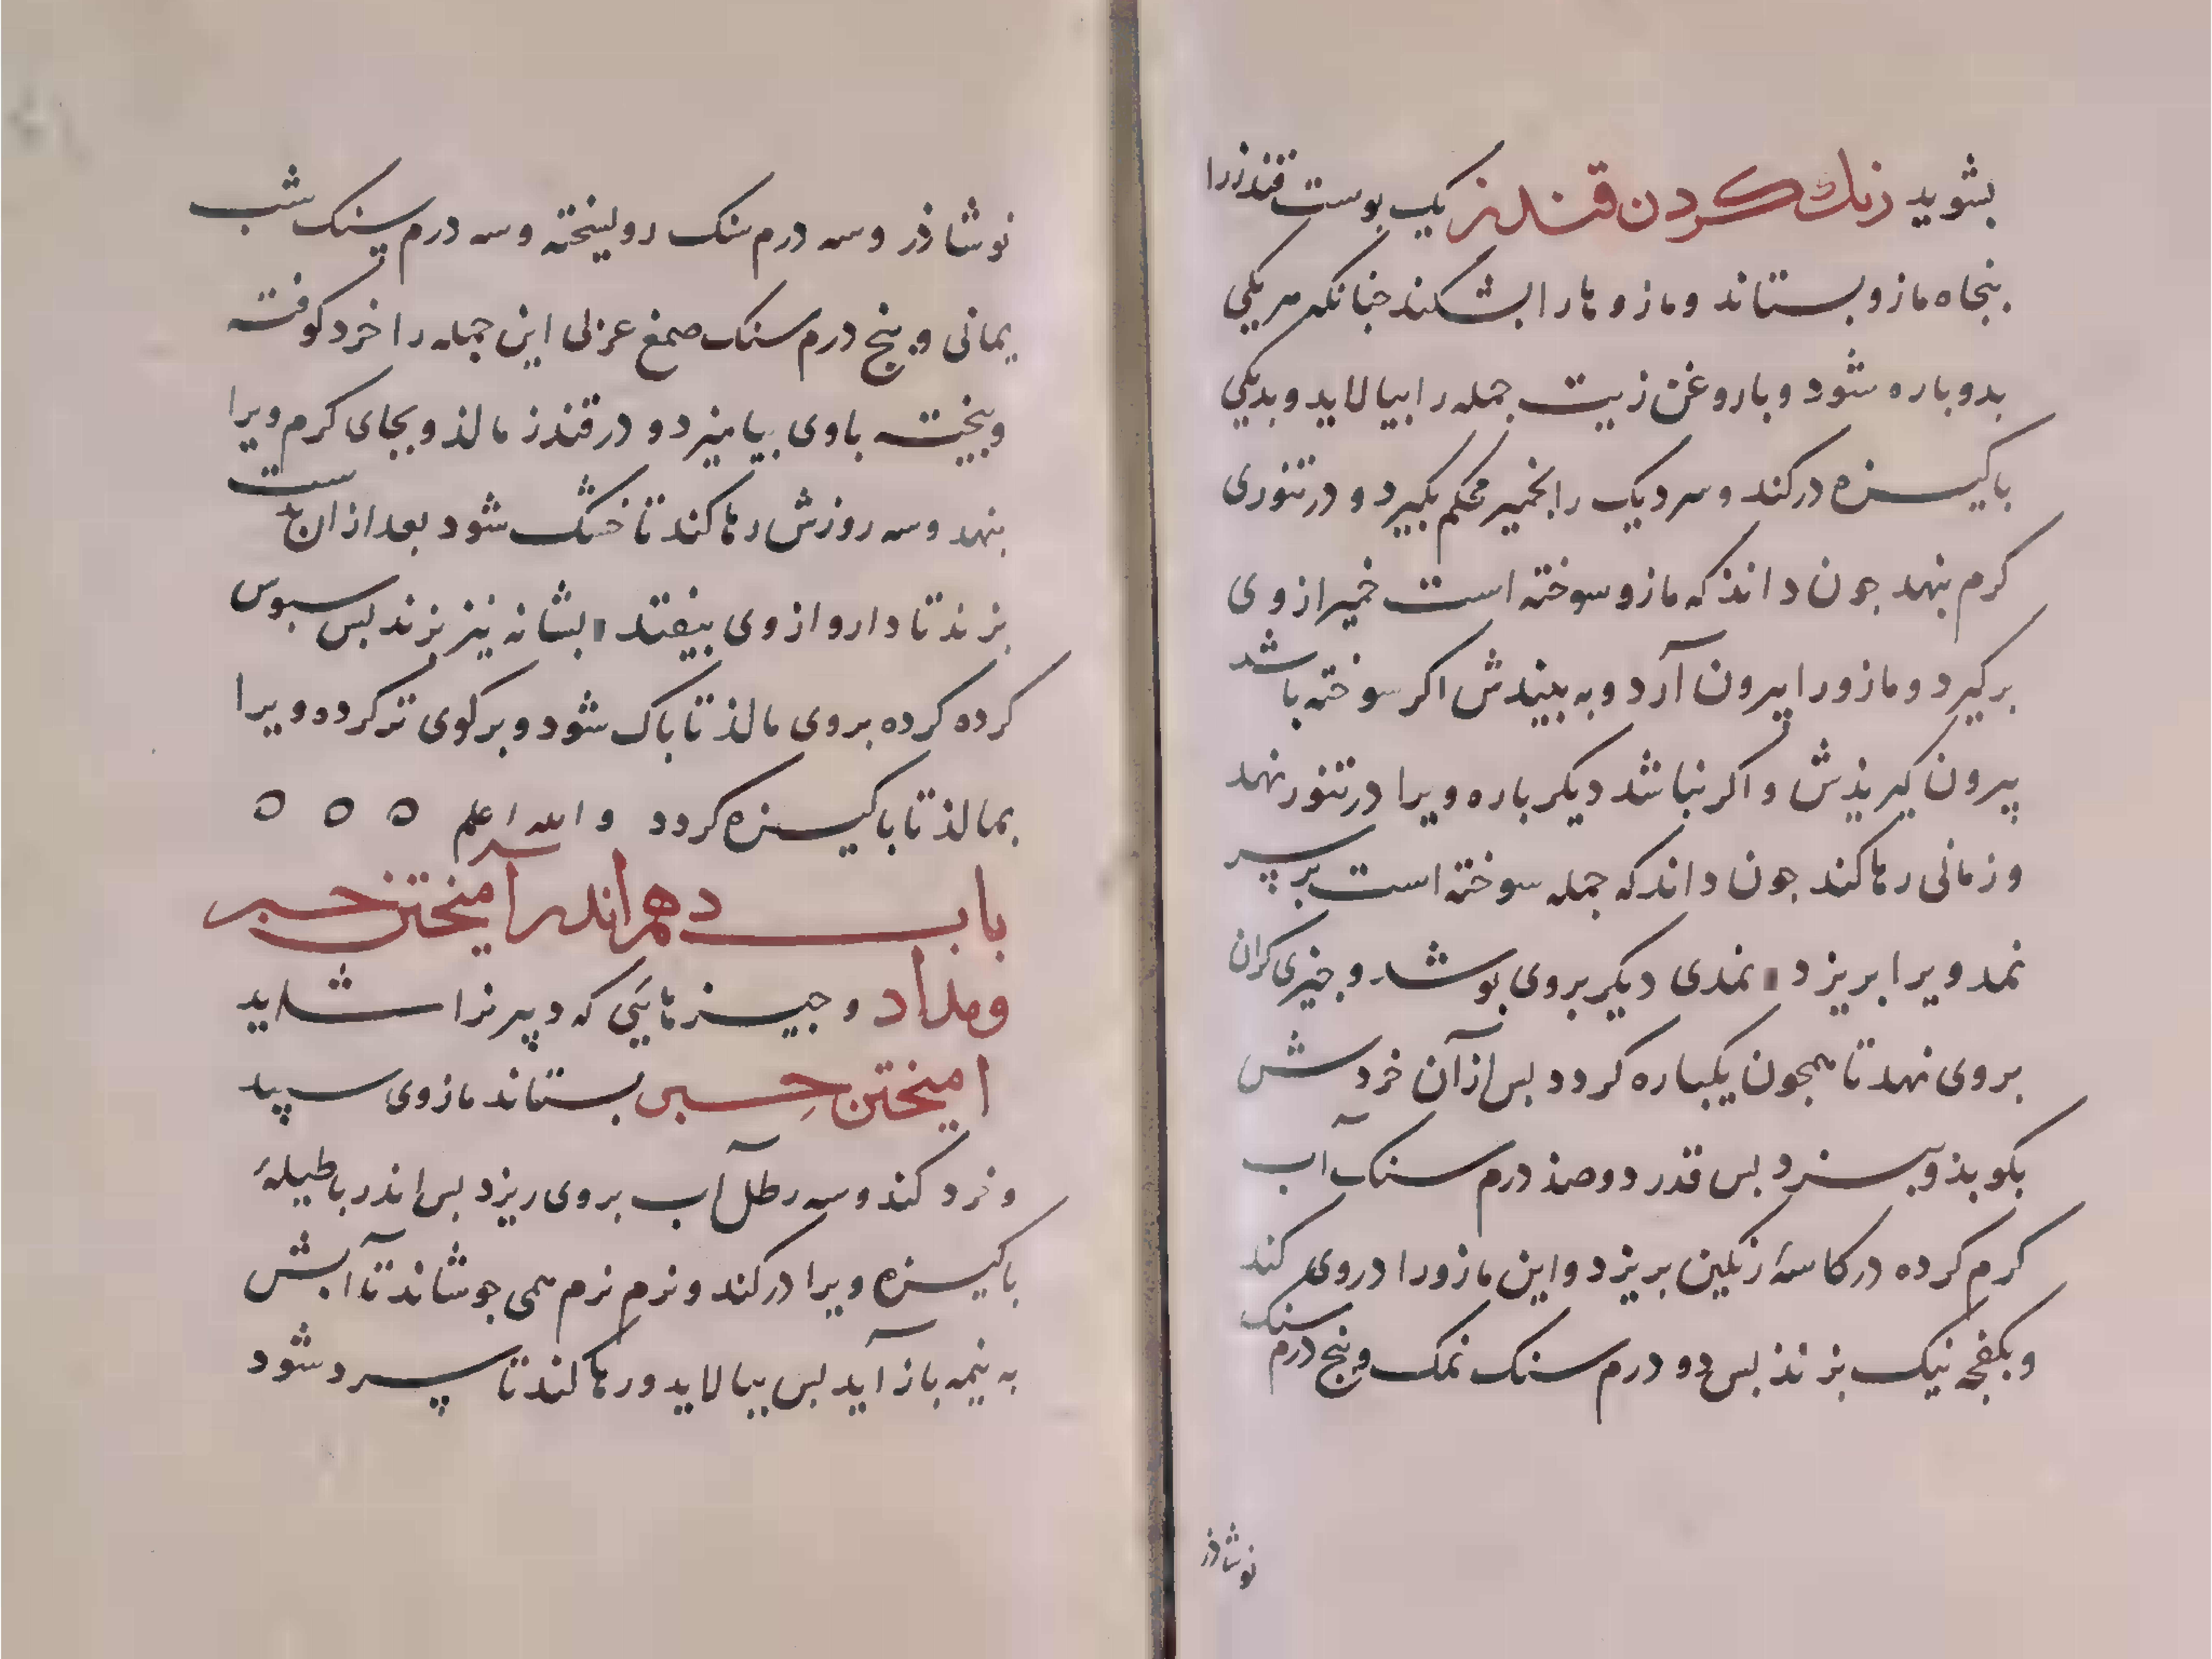 بشوید رنك كردن قندز یك بوست قندزرا
بنجاه مازو بستاند و مازوها را بشكند جنانكه هر یكی
بدو باره شود و با روغن زیت جمله را بیالاید و بدیكی
باكیزه در كند و سر دیك را بخمیر محكم بكیرد و در تنوری
كرم بنهد جون داند كه مازو سوخته است خمیر از وی
بركیرد و مازو را بیرون آرد و به بیندش اكر سوخته باشد
بیرون كیردش و اكر نباشد دیكر باره ویرا در تنور نهد
و زمانی رها كند جون داند كه جمله سوخته است بر سر
نمد ویرا بریزد نمدی دیكر بروی بوشد و جیزی كران
بروی نهد تا همجون یكباره كردد بس از آن خردش
بكوبد و ببیزد بس قدر دوصد درم سنك آب
كرم كرده در كاسهٔ رنكین بریزد و این مازو را دروی كند
و بكفجه نیك بزند بس دو درم سنك نمك و بنج درم سنك
نوشاذر
نوشاذر و سه درم سنك روسخته و سه درم سنك شب
یمانی و بنج درم سنك صمغ عربی این جمله را خرد كوفته
و بیخته باوی بیامیزد و در قندز مالذ و بجای كرم ویرا
بنهد و سه روزش رها كند تا خشك شود بعد از ان بدست
بزند تا دارو از وی بیفتد بشانه نیز بزند بس سبوس
كرده كرده بروی مالذ تا باك شود و بركوی تر كرده ویرا
بمالذ تا باكیزه كردد والله اعلم ه ه ه
باب دهم اندر آمیختن حبر
ومداد و جیزهایی كه دبیر را شاید
امیختن حبر بستاند مازوی سپید
و خرد كند و سه رطل آب بروی ریزد بس اندر باطیلهٔ
باكیزه ویرا در كند و نرم نرم همی جوشاند تا آبش
به نیمه باز آید بس ببالاید و رها كند تا سرد شود